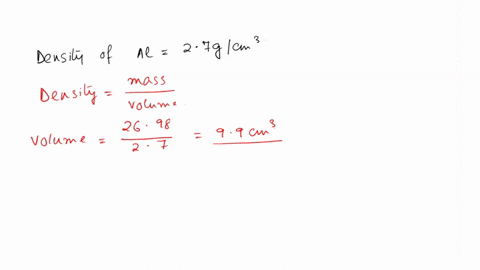 Density of Al = 2.7g/cm³
Density = mass/volume
Volume = 26.98/2.7 = 9.9 cm³